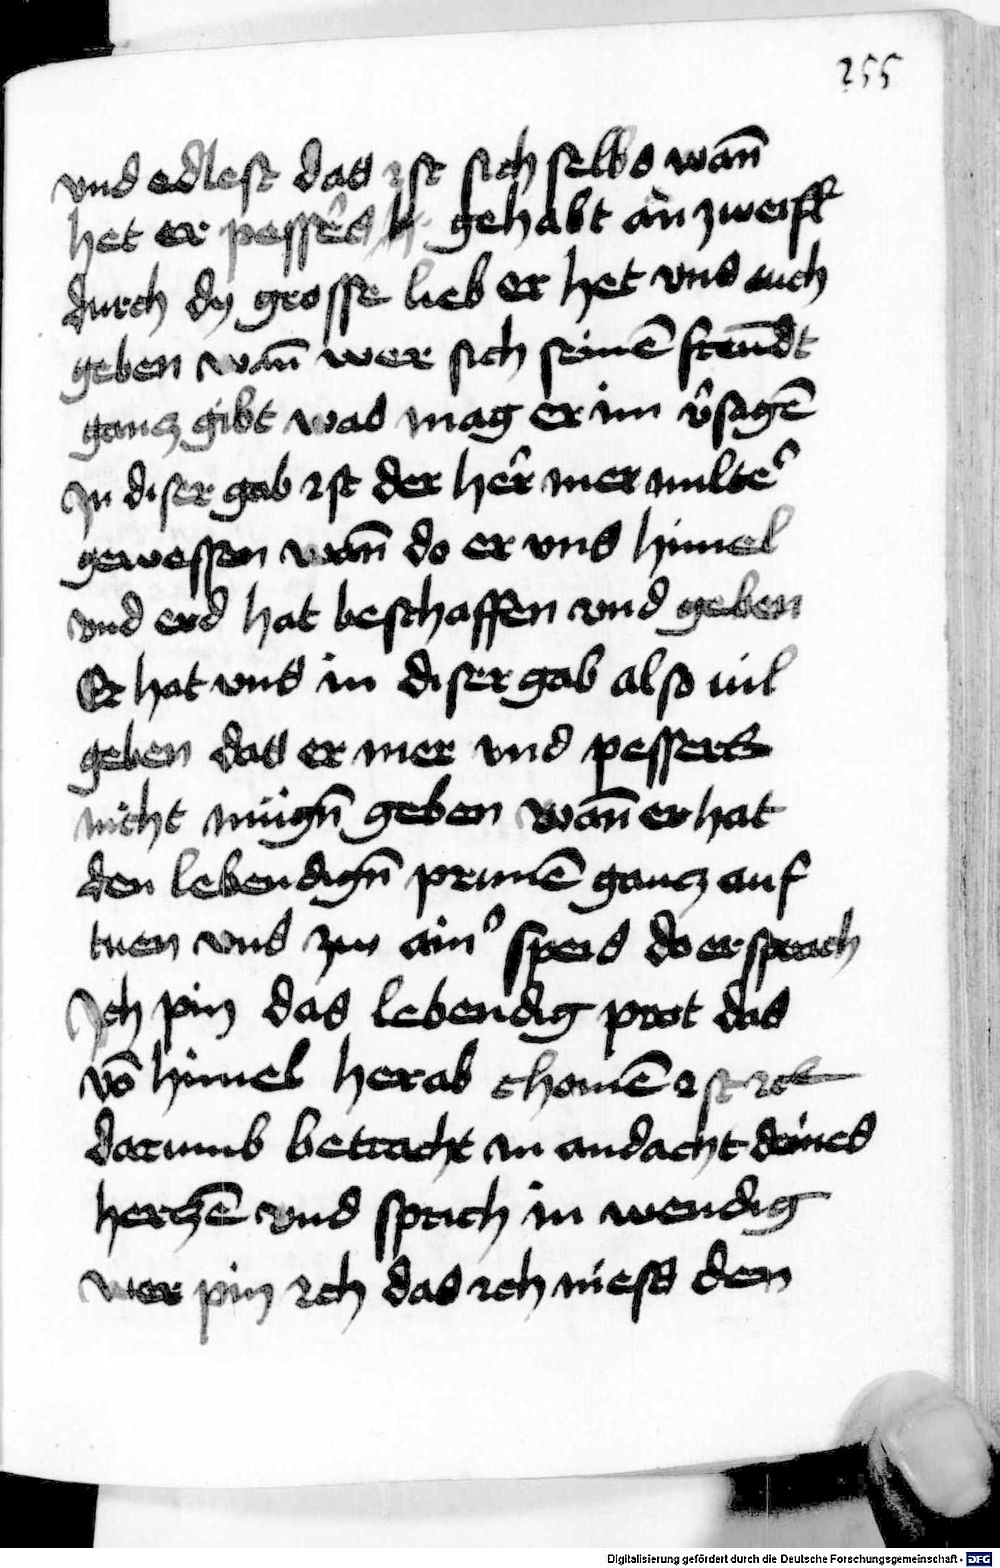 255
vnd edlest das ist sich selbs wan̄
het er pesse᷑s gehabt an zweiffl
durch dy grosse lieb er het vns auch
geben wan̄ wer sich seinē freūdt
gancz gibt was mag er im v᷑sagē
In diser gab ist der her᷑ mer milte᷑
gewessen wan̄ do er vns himel
vnd erd hat beschaffen vnd geben
Er hat vns in diser gab also uil
geben das er mer vnd pessers
nicht mügn̄ geben wan̄ er hat
den lebendign̄ prunē gancz auf
tuen vnd zw ain᷑ speis do er sprach
Ich pin das lebendig prot das
vō himel herab chomē ist
darumb betracht in andacht deines
herczē vnd sprich in wendig
wer pin ich das ich niess den
Digitalisierung gefördert durch die Deutsche Forschungsgemeinschaft - DFG